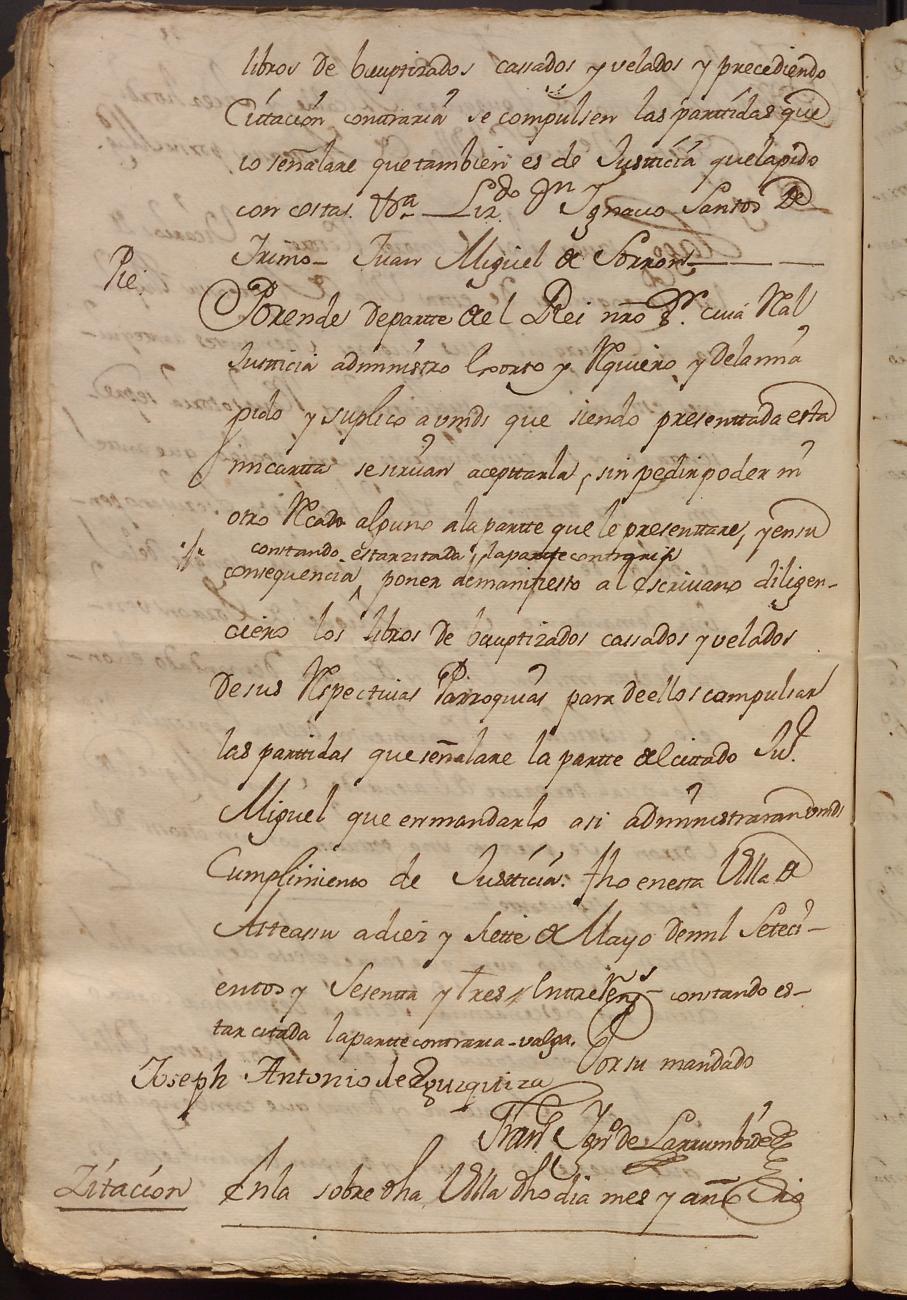 libros de bauptizados cassados y velados y precediendo
Cittación conttraria se compulsen las parttidas que
io señalare que tambien es de Justticia que la pido
con costas. &ra Lizdo Dn Ygnacio Santos de
Juan Miguel de
Pie.
Porende departte del Rei nro Sr. cuia Real
Justticia administro Exorto y Requiero y dela mia
pido y suplico a vmds que siendo presenttada esta
mi cartta se sirvan acepttarla, sin pedir poder ni
otro Recado alguno ala partte que le presenttare, y en su
constando estar zitada la partte contraria
consequencia ^ poner de manifiesto al escrivano diligen-
ciero los libros de bauptizados cassados y velados
de sus Respectivas Parroquias para de ellos compulsar
las parttidas que señalare la partte del citado Jun.
Miguel que en mandarlo asi administraran vmds
Cumplimiento de Justticia. fho en esta Villa de
Asteasu a diez y siette de Mayo de mil Seteci-
entos y Sesentta y tres Enttre Rengs constando es-
tar citada la partte contraria - valga.
Por su mandado
Joseph Antonio de Yzurquiza
Franco Ygno de Larrumbide
Zitación
En la sobre dha Villa dho dia mes y año